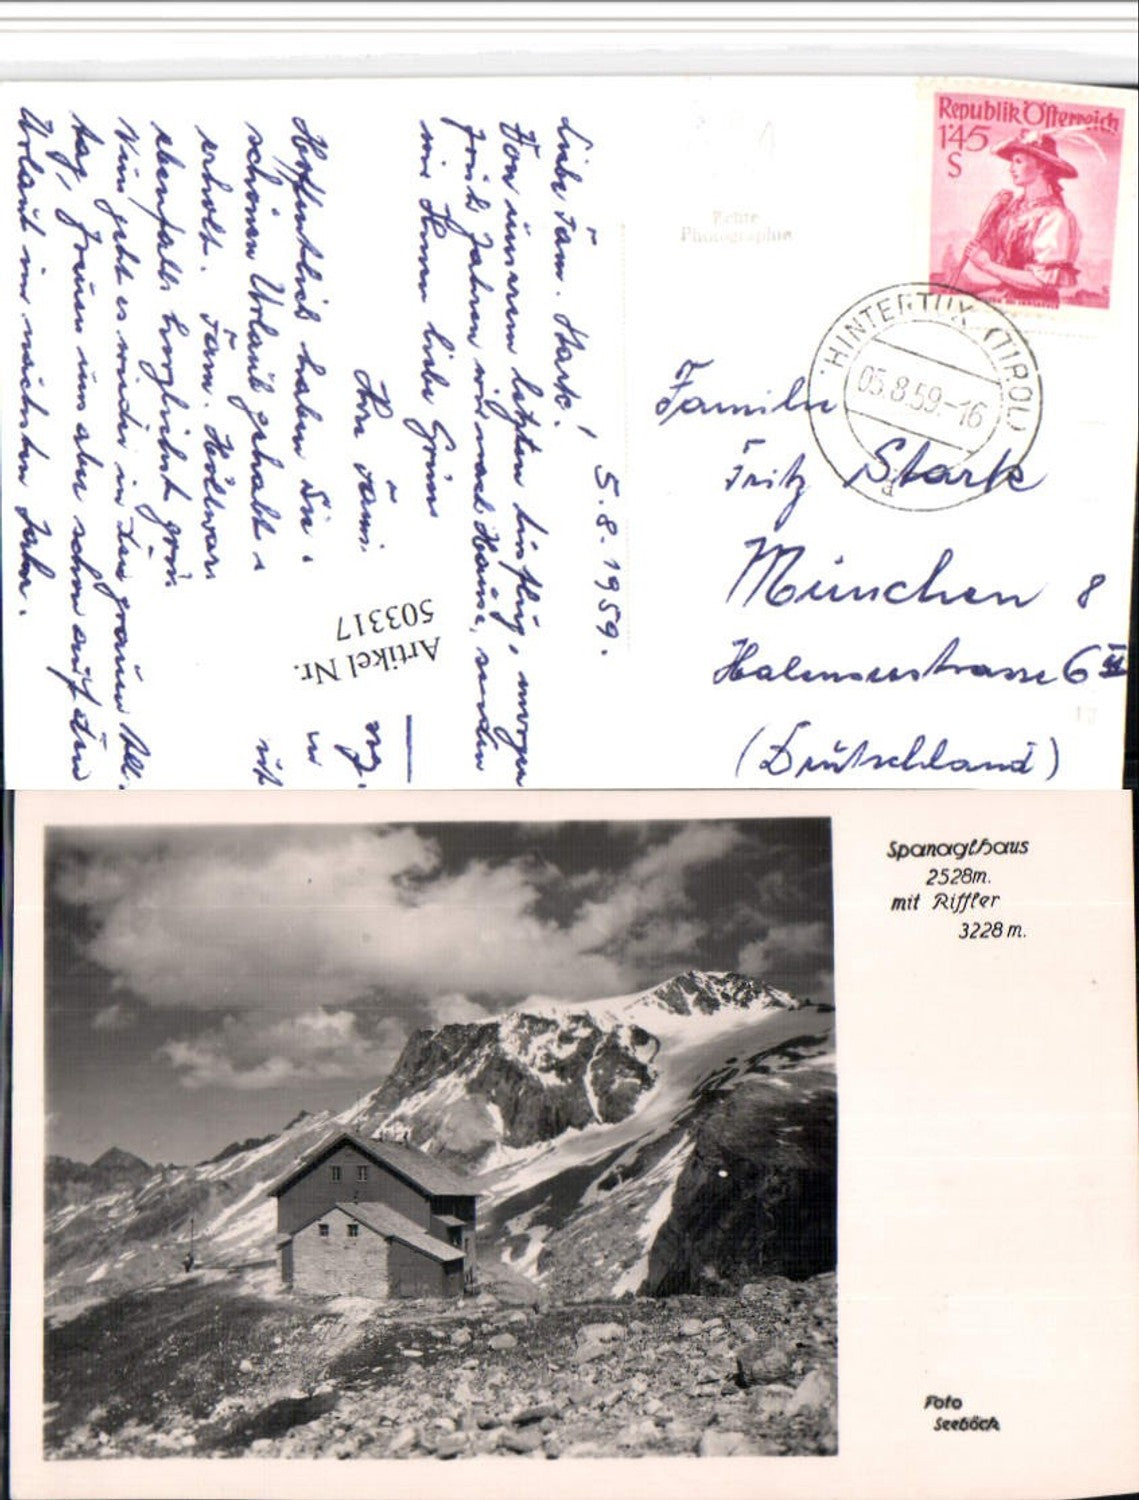 Republik Österreich
1'45
S
Echte
Photographie
HINTERTUX (TIROL)
05.8.59-16
a
Familie
Fritz Stark
München 8
6 III
(Deutschland)
5.8.1959.
Liebe Fam. Stark!
Von unserem letzten Ausflug, morgen
früh fahren wir nach Hause, senden
wir Ihnen liebe Grüsse
Ihre Fam.
Hoffentlich haben Sie
schönen Urlaub gehabt
erholt. Fam.
ebenfalls herzlichst
Nun geht es wieder in den grauen All-
tag, freuen uns aber schon auf den
Urlaub im nächsten Jahr.
Artikel Nr.
503317
Spanaglhaus
2528m.
mit Riffler
3228 m.
Foto
Seeböck